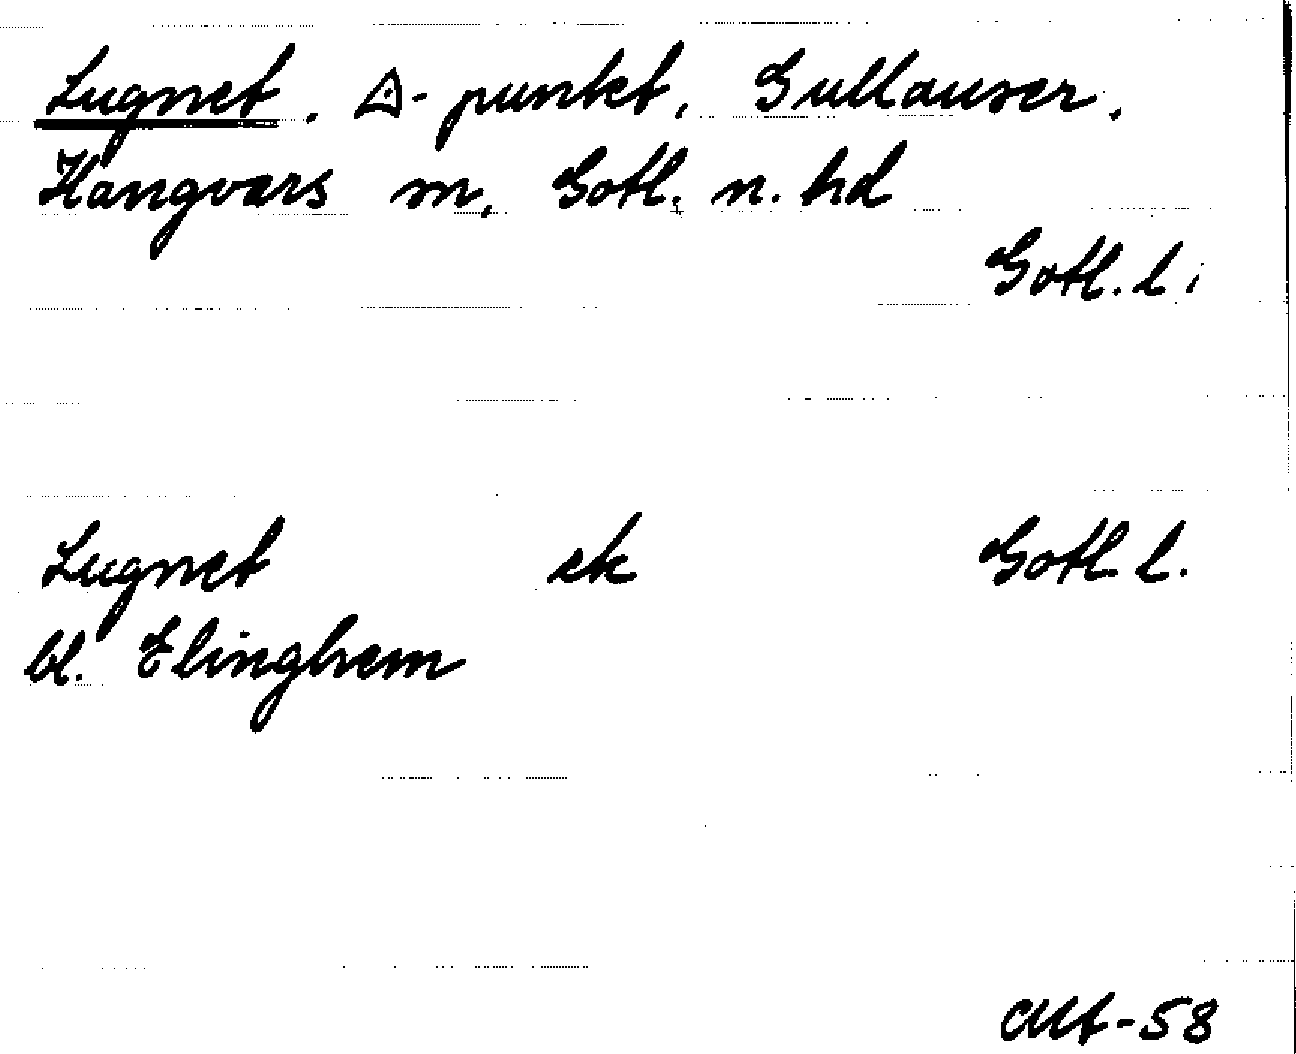 Lugnet. △-punkt, Gullauser,
Hangvars sn, Gotl. n. hd
Gotl. l.
Lugnet ek Gotl. l.
bl. Elinghem
-58